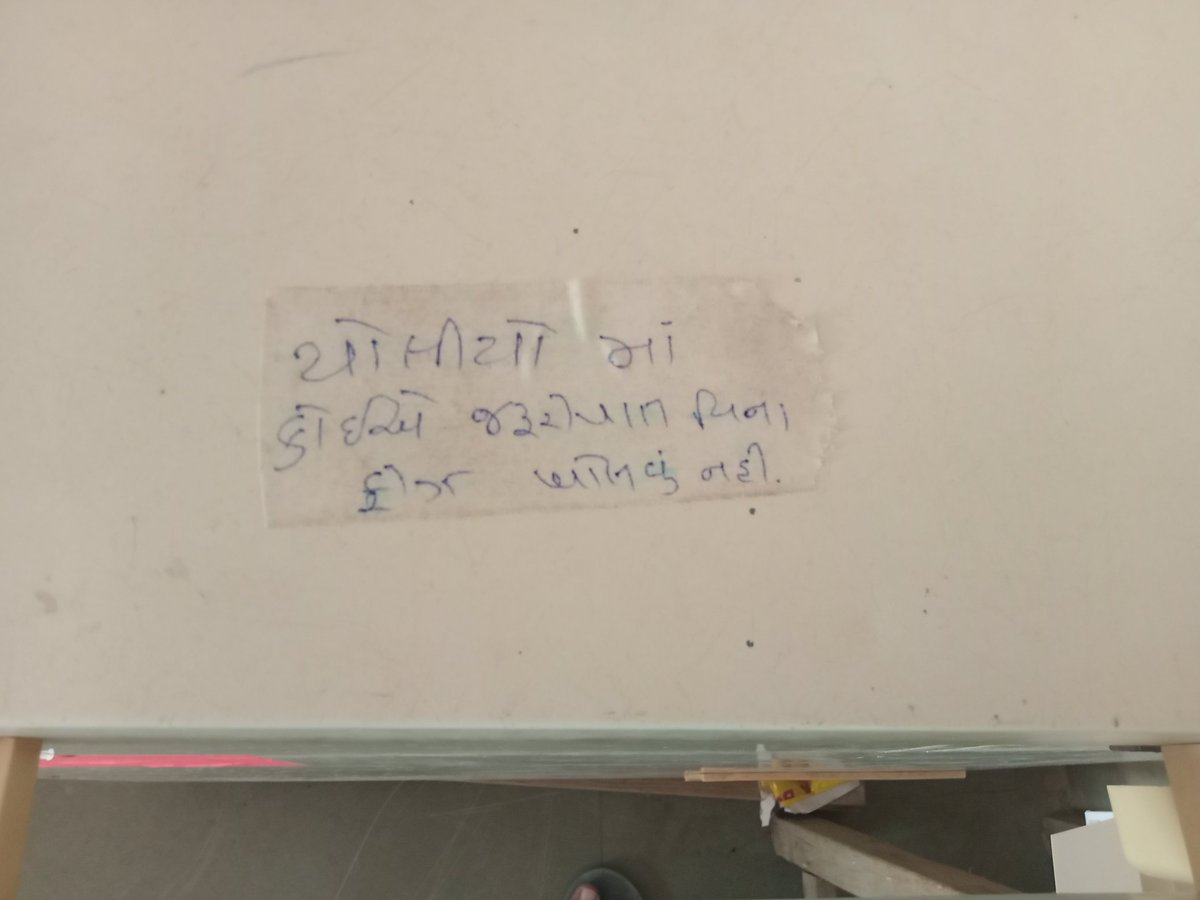 ચોલીયો માં
કોઈએ જરૂરીયાત વિના
ફ્રીજ ખોલવું નહી.